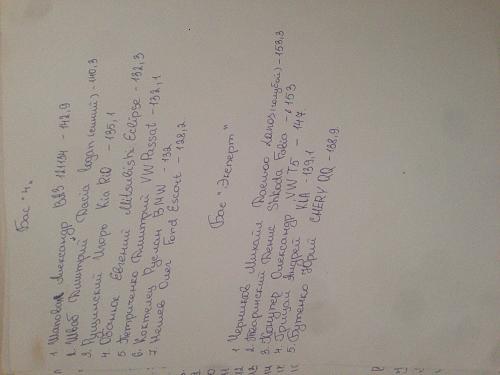 Бас "4"
1 Шаповал Александр ВАЗ 121134 - 142,9
2. Швап Дмитрий Dacia logan (синий) - 140,3
3. Рущинский Игорь Kia Rio - 135,1
4. Евгений Mitsubishi Eclipse - 132,3
5 Петриченко Дмитрий VW Passat - 132,1
6. Коктелец Руслан BMW - 132
7 Нешев Олег Ford Escort - 128,2
Бас "Эксперт"
1 Черников Михайл Daewoo Lanos (голубой) - 158,3
2. Тваринский Денис Shkoda Fabia - 153
3. Олександр VW T5 - 147
4. Грицай Андрей KIA - 139,1
5. Бутенко Юрий CHERY QQ - 138,9